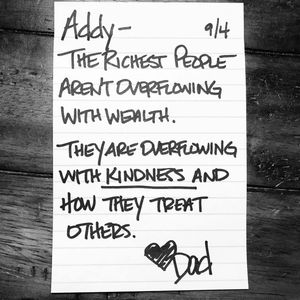 Addy- 9/4
THE RICHEST PEOPLE
AREN'T OVERFLOWING
WITH WEALTH.
THEY ARE OVERFLOWING
WITH KINDNESS AND
HOW THEY TREAT
OTHERS.
Dad